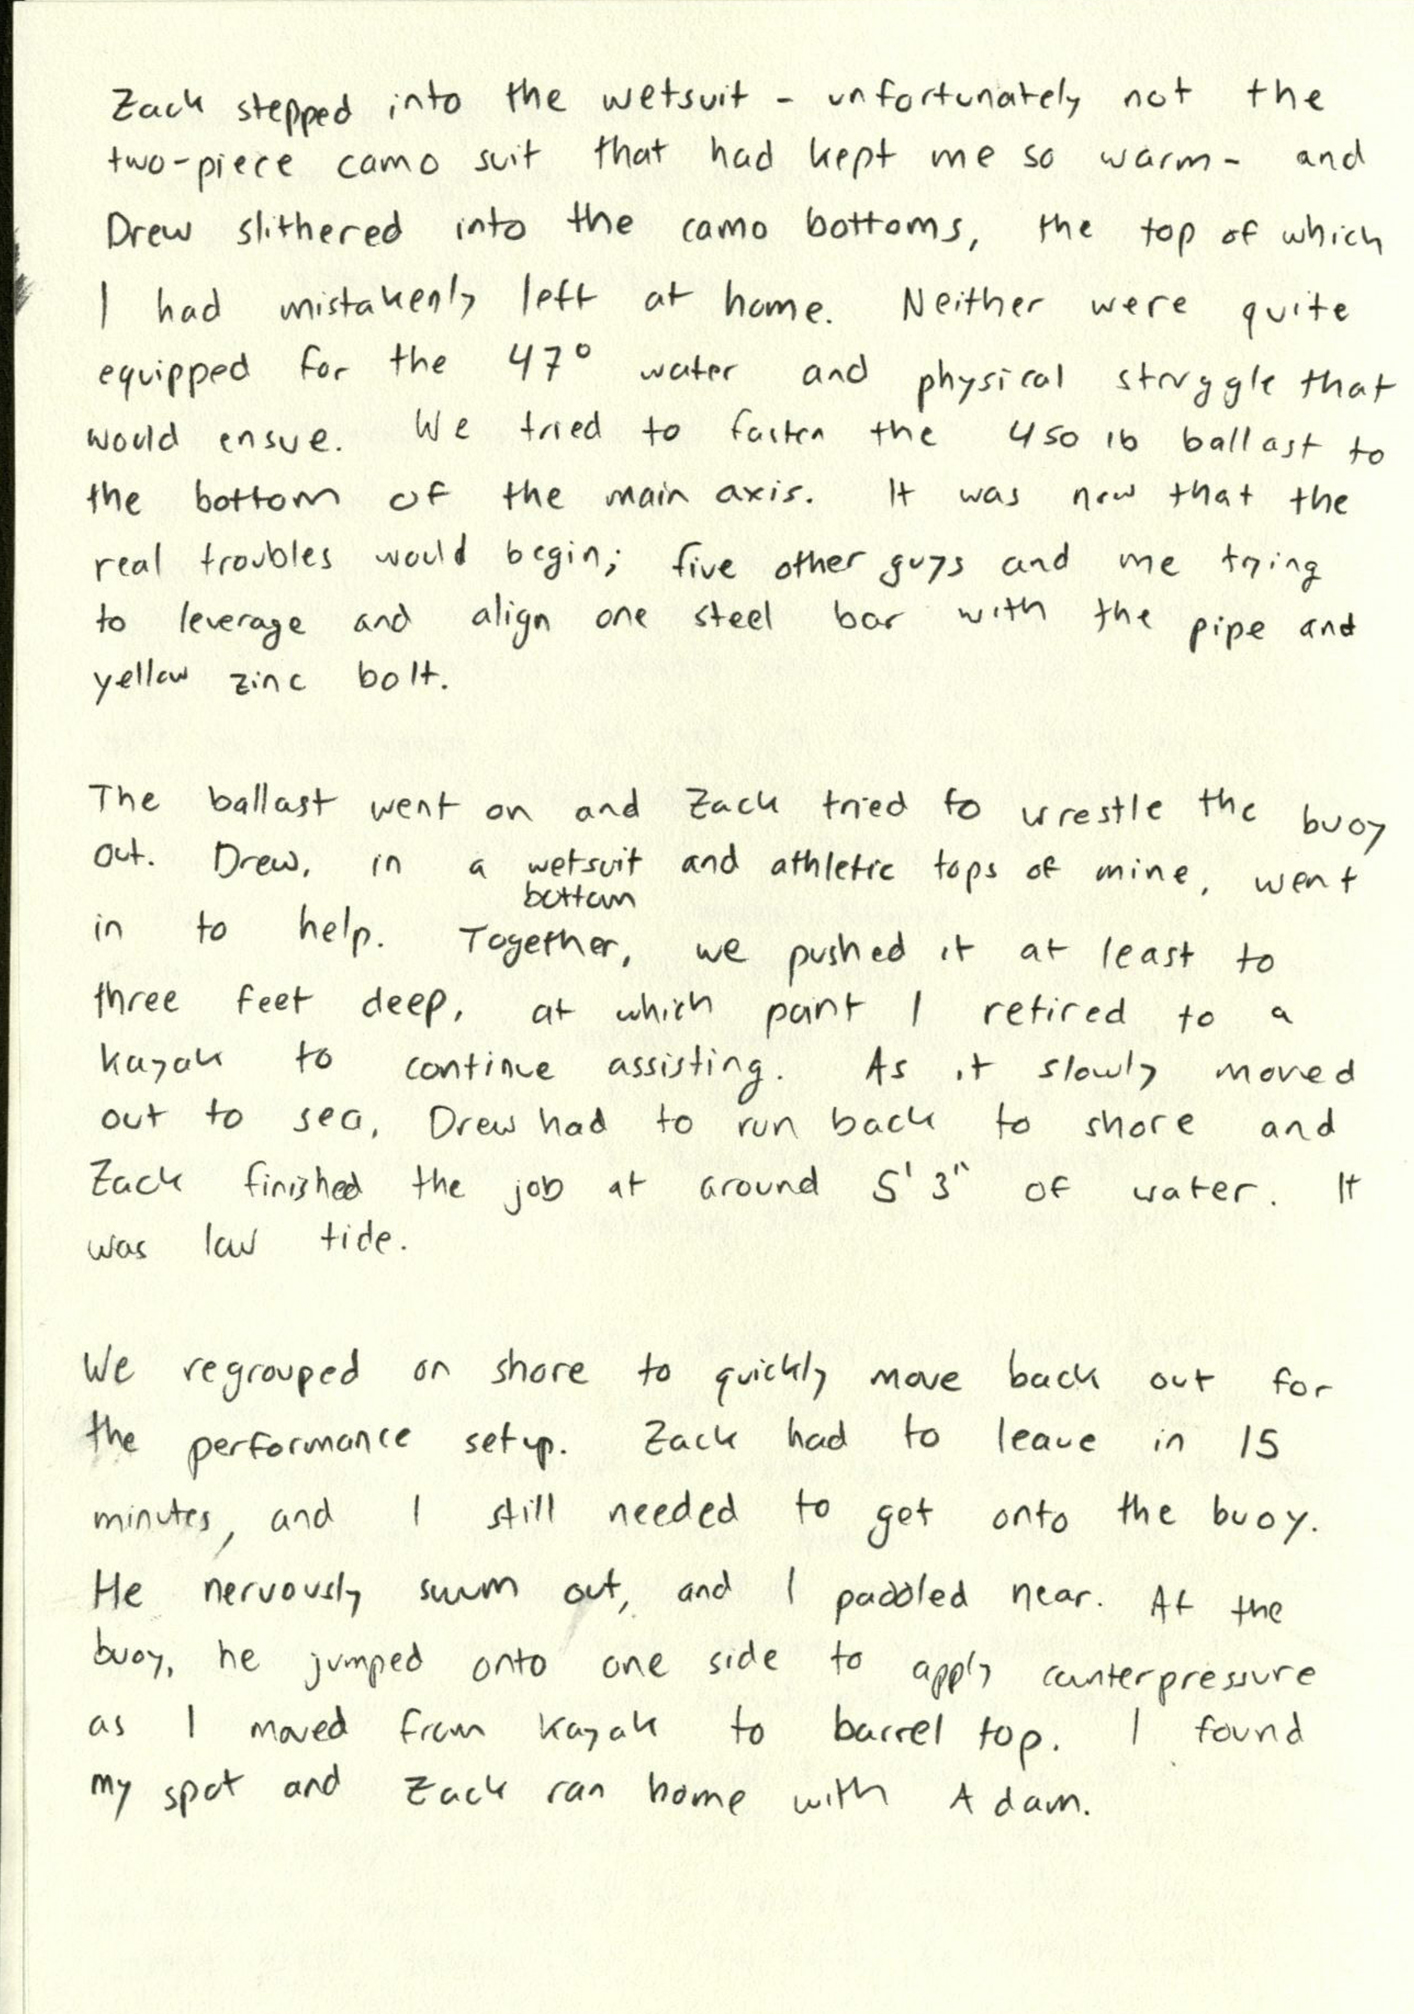 Zack stepped into the wetsuit - unfortunately not the
two-piece camo suit that had kept me so warm - and
Drew slithered into the camo bottoms, the top of which
I had mistakenly left at home. Neither were quite
equipped for the 47° water and physical struggle that
would ensue. We tried to fasten the 450 lb ballast to
the bottom of the main axis. It was now that the
real troubles would begin; five other guys and me trying
to leverage and align one steel bar with the pipe and
yellow zinc bolt.
The ballast went on and Zack tried to wrestle the buoy
out. Drew, in a wetsuit and athletic tops of mine, went
bottom
in to help. Together, we pushed it at least to
three feet deep, at which point I retired to a
kayak to continue assisting. As it slowly moved
out to sea, Drew had to run back to shore and
Zack finished the job at around 5' 3" of water. It
was low tide.
We regrouped on shore to quickly move back out for
the performance setup. Zack had to leave in 15
minutes, and I still needed to get onto the buoy.
He nervously swum out, and I paddled near. At the
buoy, he jumped onto one side to apply counterpressure
as I moved from kayak to barrel top. I found
my spot and Zack ran home with Adam.